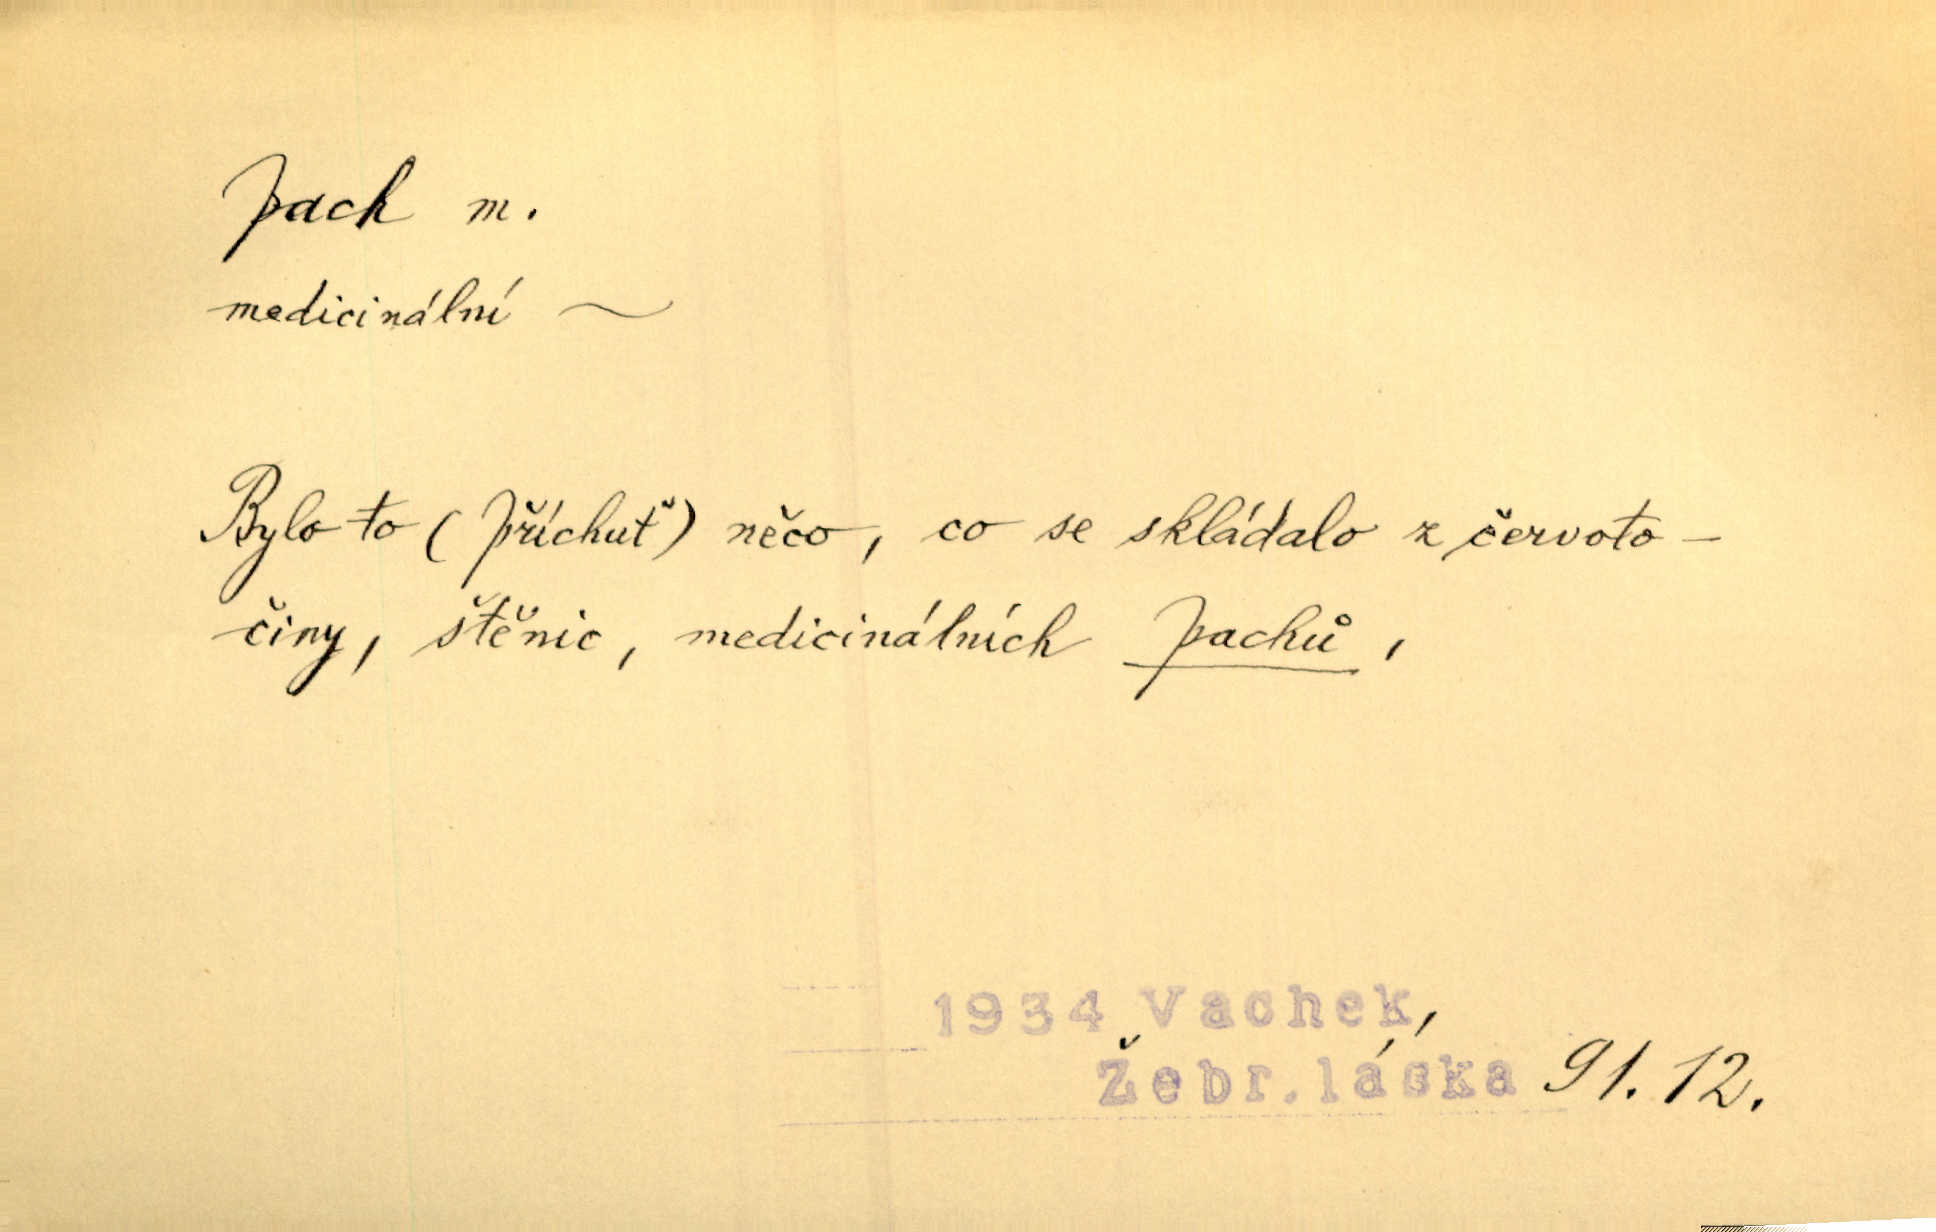 pach m.
medicinální ~
Bylo to (příchuť) něco, co se skládalo z červoto-
činy, štěnic, medicinálních pachů,
1934 Vachek,
Žebr. láska 91. 12.